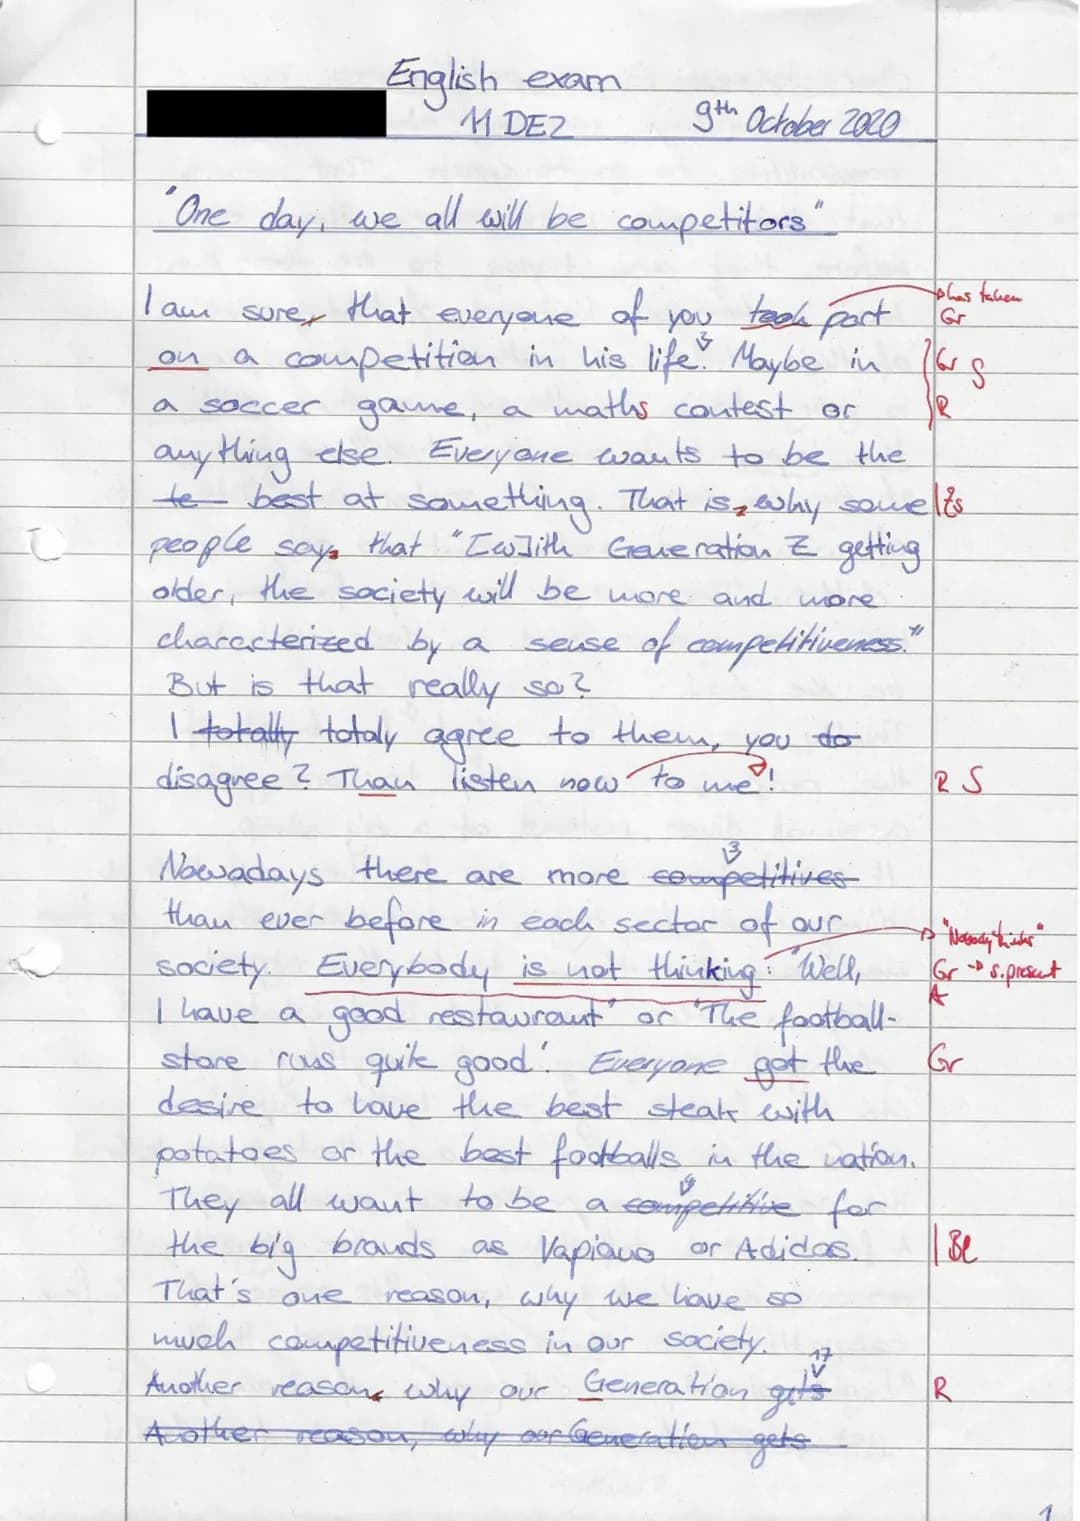 English exam
11 DE2 9th October 2020
"One day, we all will be competitors"
I am sure, that everyone of you took part
has taken
Gr
on a competition in his life.³ Maybe in
Gr S
a soccer game, a maths contest or
R
anything else. Everyone wants to be the
te best at something. That is, why some
Zs
people say, that "[w]ith Generation Z getting
older, the society will be more and more
characterized by a sense of competitiveness."
But is that really so?
I totally totaly agree to them, you do
disagree? Than listen now to me!
R S
3
Nowadays there are more competitives
than ever before in each sector of our
"Nobody thinks"
society. Everybody is not thinking: "Well,
Gr → s. present
A
I have a good restaurant" or "The football-
store runs quite good". Everyone got the
Gr
desire to have the best steak with
potatoes or the best footballs in the nation.
They all want to be a competitive for
the big brands as Vapiano or Adidas.
Be
That's one reason, why we have so
much competitiveness in our society.
17
Another reason, why our Generation gets
R
Another reason, why our Generation gets
1